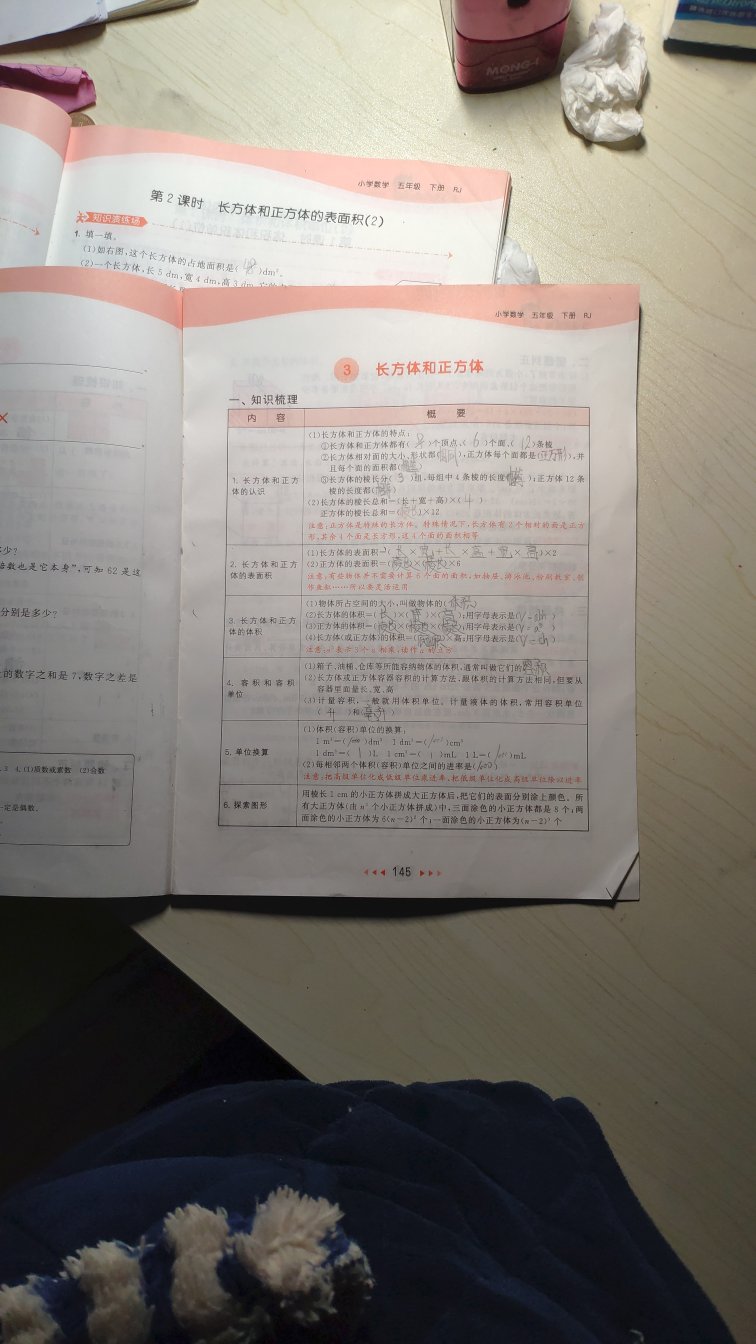 MONG-I
小学数学 五年级 下册 RJ
第2课时 长方体和正方体的表面积(2)
知识演练场
1. 填一填。
(1)如右图,这个长方体的占地面积是( 48 )dm²。
(2)一个长方体,长 5 dm,宽 4 dm,高 3 dm,
小学数学 五年级 下册 RJ
3 长方体和正方体
一、知识梳理
内 容 概 要
1. 长方体和正方体的认识
(1)长方体和正方体的特点:
①长方体和正方体都有( 8 )个顶点,( 6 )个面,( 12 )条棱
②长方体相对面的大小、形状都(相同),正方体每个面都是(正方形),并
且每个面的面积都()
③长方体的棱长分( 3 )组,每组中 4 条棱的长度();正方体 12 条
棱的长度都()
(2)长方体的棱长总和=(长+宽+高)×( 4 )
正方体的棱长总和=(棱长)×12
注意:正方体是特殊的长方体。特殊情况下,长方体有 2 个相对的面是正方
形,其余 4 个面是长方形,这 4 个面的面积相等
2. 长方体和正方体的表面积
(1)长方体的表面积=(长×宽+长×高+宽×高)×2
(2)正方体的表面积=(棱长)×(棱长)×6
注意:有些物体并不需要计算 6 个面的面积,如抽屉、游泳池、粉刷教室、制
作鱼缸……所以要灵活运用
3. 长方体和正方体的体积
(1)物体所占空间的大小,叫做物体的(体积)
(2)长方体的体积=(长)×(宽)×(高);用字母表示是(V=abh)
(3)正方体的体积=(棱长)×(棱长)×(棱长);用字母表示是(V=a³)
(4)长方体(或正方体)的体积=()×高;用字母表示是(V=sh)
注意:a³ 表示 3 个 a 相乘,读作 a 的立方
4. 容积和容积单位
(1)箱子、油桶、仓库等所能容纳物体的体积,通常叫做它们的容积
(2)长方体或正方体容器容积的计算方法,跟体积的计算方法相同,但要从
容器里面量长、宽、高
(3)计量容积,一般就用体积单位。计量液体的体积,常用容积单位
( 升 )和(毫升)
5. 单位换算
(1)体积(容积)单位的换算:
1 m³=(1000)dm³ 1 dm³=(1000)cm³
1 dm³=( 1 )L 1 cm³=( 1 )mL 1 L=(1000)mL
(2)每相邻两个体积(容积)单位之间的进率是(1000)
注意:把高级单位化成低级单位乘进率,把低级单位化成高级单位除以进率
6. 探索图形
用棱长 1 cm 的小正方体拼成大正方体后,把它们的表面分别涂上颜色。所
有大正方体(由 n³ 个小正方体拼成)中,三面涂色的小正方体都是 8 个;两
面涂色的小正方体为 6(n−2)² 个;一面涂色的小正方体为(n−2)³ 个
145
多少?
倍数也是它本身”,可知 62 是这
分别是多少?
的数字之和是 7,数字之差是
3 4.(1)质数或素数 (2)合数
一定是偶数。